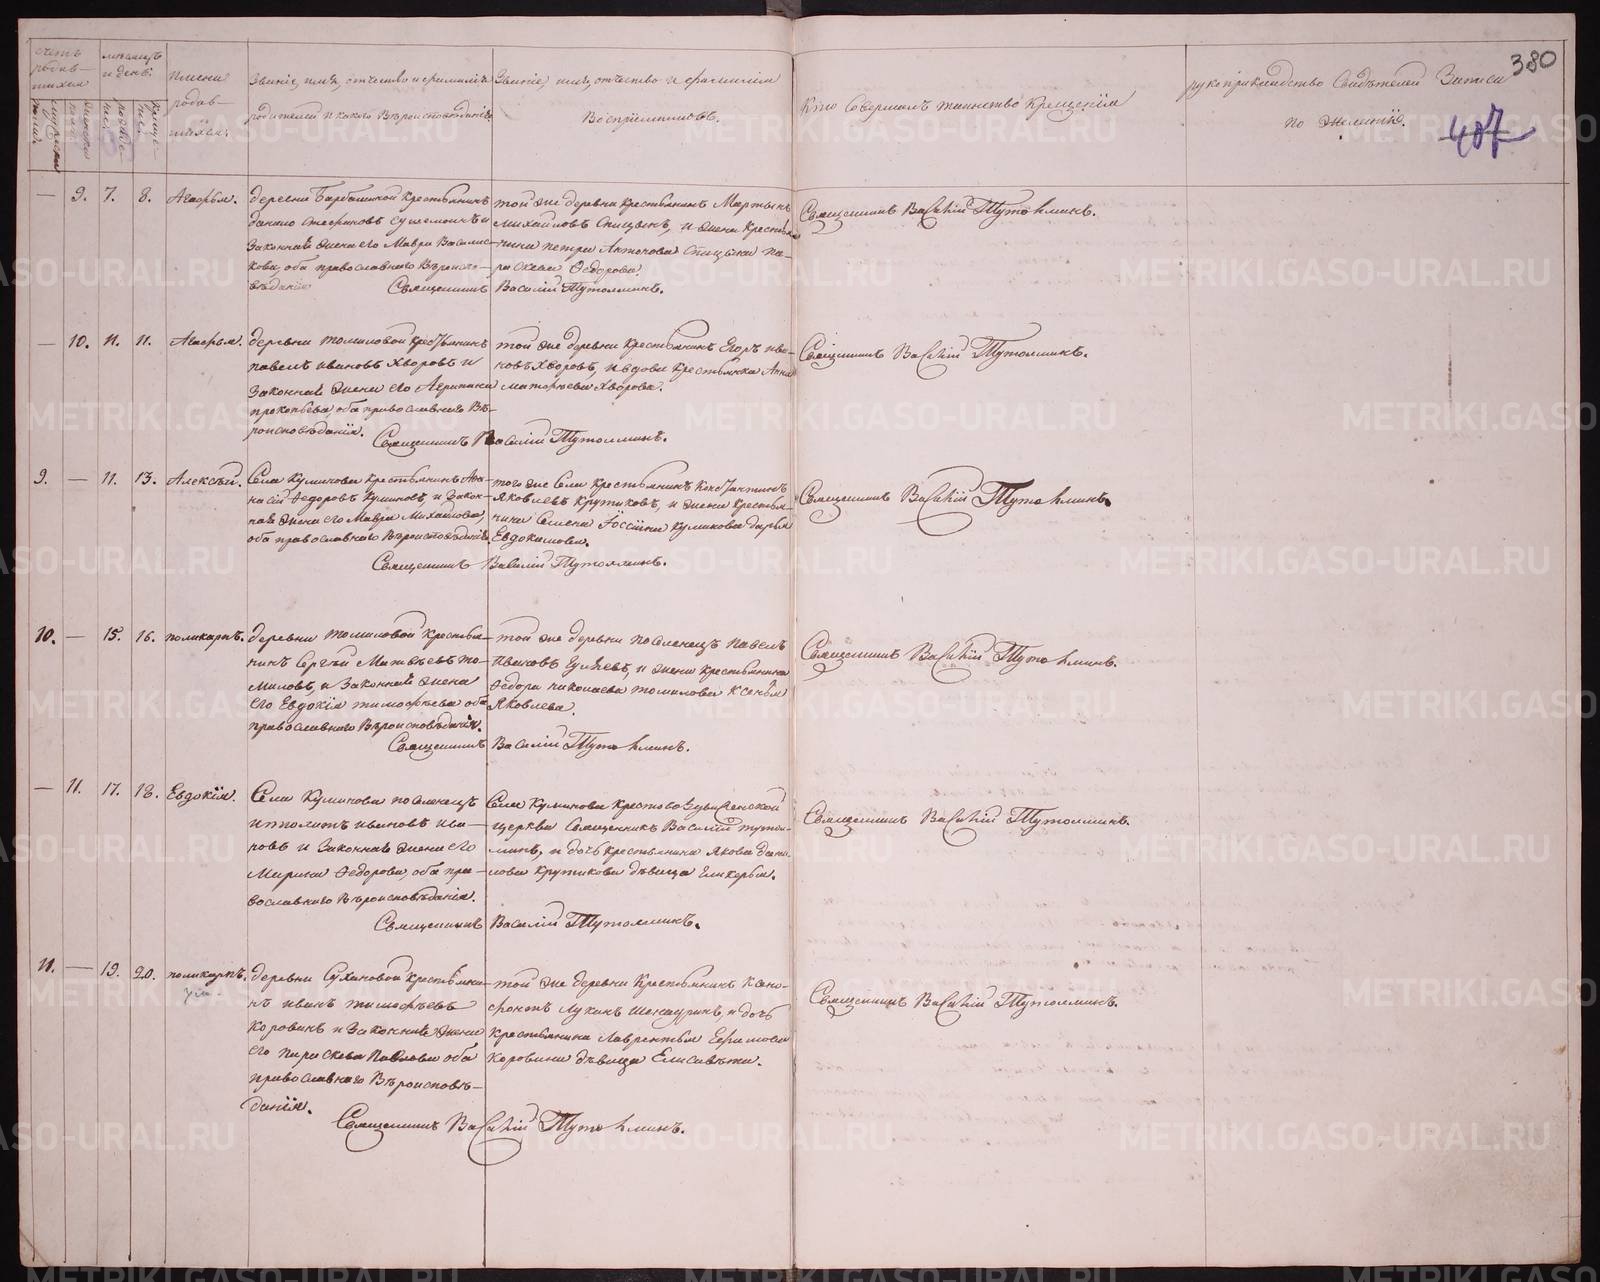 380
407
Счетъ родив-шихся
мѣсяцъ и день
Имена родив-шихся.
Званіе, имя, отчество и фамилія родителей и какого Вѣроисповѣданія
Званіе, имя, отчество и фамилія Воспріемниковъ.
Кто Совершалъ таинство Крещенія
рукоприкладство Свидѣтелей Записи по желанію.
— 9. 7. 8. Агафья.
деревни Барбашиной Крестьянинъ
законная жена его Мавра Василис-
кова, оба православнаго Вѣроиспо-
вѣданія
той же деревни Крестьянинъ Мартынъ
Михайловъ Спицынъ, и жена Крестья-
нина петра Антонова Спицына па-
раскева Федорова
Священникъ Василій Тутолминъ.
Священникъ Василій Тутолминъ.
— 10. 11. 11. Агафья.
деревни томиловой крестьянинъ
павелъ ивановъ Хворовъ и
Законная жена его Агрипина
прокопьева оба православнаго Вѣ-
роисповѣданія.
той же деревни Крестьянинъ Егоръ ива-
новъ Хворовъ, и вдова Крестьянка Анна
Хворова.
Священникъ Василій Тутолминъ.
Священникъ Василій Тутолминъ.
9. — 11. 13. Алексѣй.
Села Куликова Крестьянинъ Афа-
насій Федоровъ Куликовъ и Закон-
ная жена его Мавра Михайлова
оба православнаго Вѣроисповѣданія
того же Села Крестьянинъ Констянтинъ
Яковлевъ Крутиковъ, и жена Крестья-
нина Семена Куликова дарья
Евдокимова.
Священникъ Василій Тутолминъ.
Священникъ Василій Тутолминъ.
10. — 15. 16. поликарпъ.
деревни томиловой Крестья-
нинъ Сергѣй Матвѣевъ то-
миловъ, и Законная жена
его Евдокія тимофѣева оба
православнаго Вѣроисповѣданія.
той же деревни поселенецъ павелъ
Ивановъ, и жена крестьянина
Федора николаева томилова Ксенья
Яковлева.
Священникъ Василій Тутолминъ.
Священникъ Василій Тутолминъ.
— 11. 17. 18. Евдокія.
Села Куликова поселенецъ
иполитъ ивановъ ива-
новъ и Законная жена его
Марина Федорова, оба пра-
вославнаго Вѣроисповѣданія.
Села Куликова Крестовоздвиженской
церкви Священникъ Василій тутол-
минъ, и дочь крестьянина Якова Дани-
лова Крутикова дѣвица Гликерья.
Священникъ Василій Тутолминъ.
Священникъ Василій Тутолминъ.
11. — 19. 20. поликарпъ.
деревни Сухановой Крестьяни-
нъ иванъ тимофѣевъ
Коровинъ и Законная жена
его параскева Павлова оба
православнаго Вѣроисповѣ-
данія.
той же деревни Крестьянинъ Ксено-
фонтъ Лукинъ, и дочь
Крестьянина Лаврентья Ефимова
Коровина дѣвица Елисавета.
Священникъ Василій Тутолминъ.
Священникъ Василій Тутолминъ.
METRIKI.GASO-URAL.RU